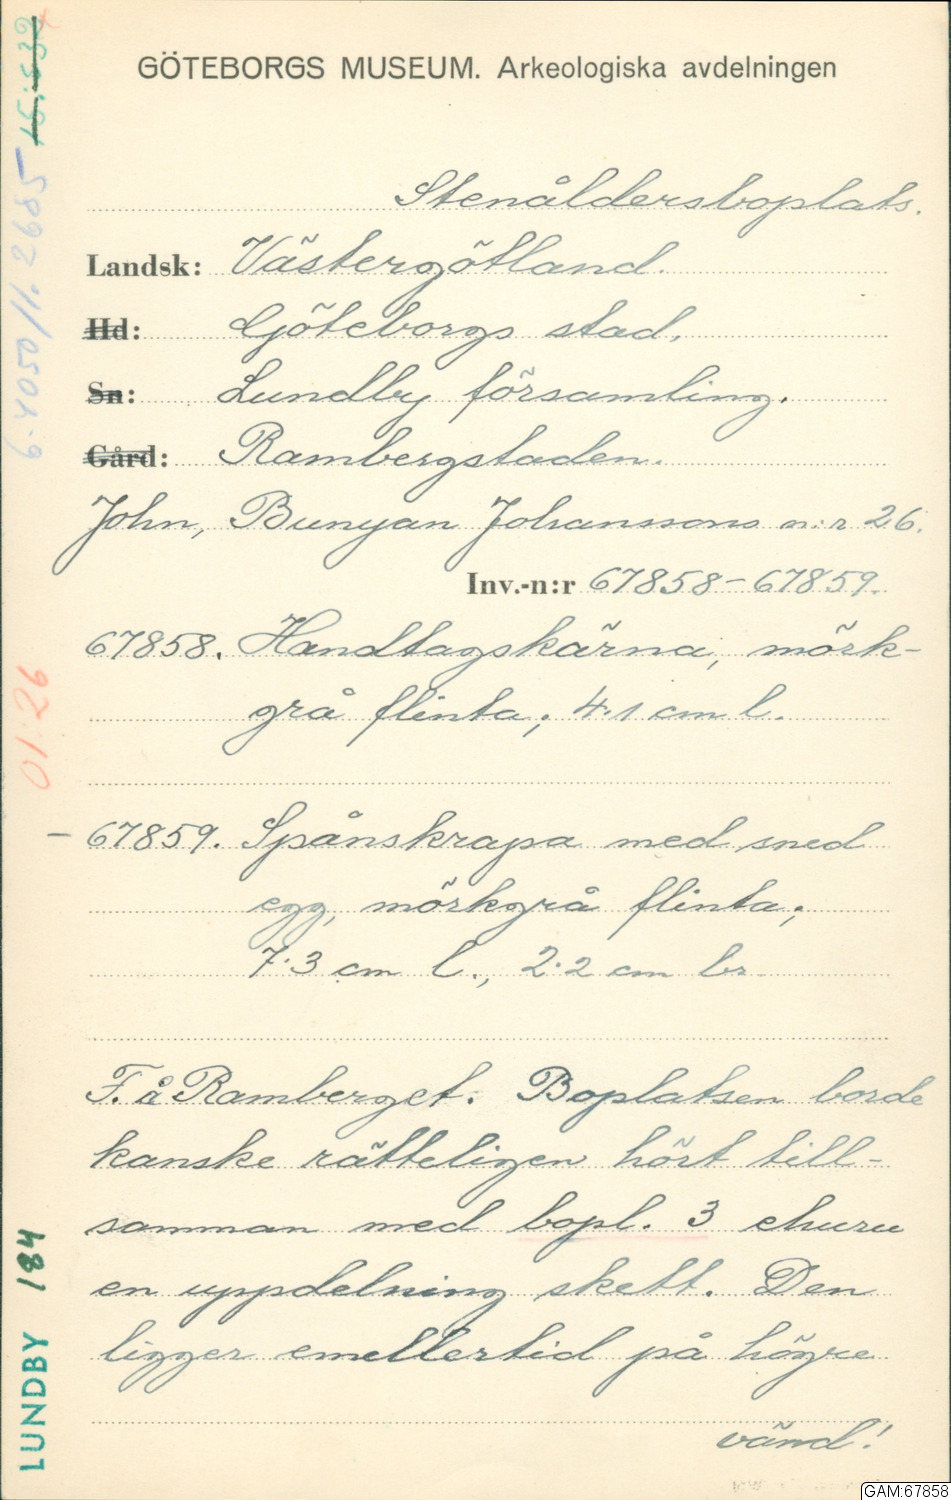 GÖTEBORGS MUSEUM. Arkeologiska avdelningen
Stenåldersboplats.
Landsk: Västergötland.
Hd: Göteborgs stad.
Sn: Lundby församling.
Gård: Rambergstaden.
John, Bunyan Johanssons n:r 26.
Inv.-n:r 67858-67859.
67858. Handtagskärna, mörk-
grå flinta; 4.1 cm l.
67859. Spånskrapa med sned
egg, mörkgrå flinta;
7.3 cm l., 2.2 cm br.
F. å Ramberget. Boplatsen borde
kanske rätteligen hört till-
samman med bopl. 3 ehuru
en uppdelning skett. Den
ligger emellertid på högre
vänd!
15:532
6-4050/11.2685
01.26
LUNDBY 184
GAM:67858